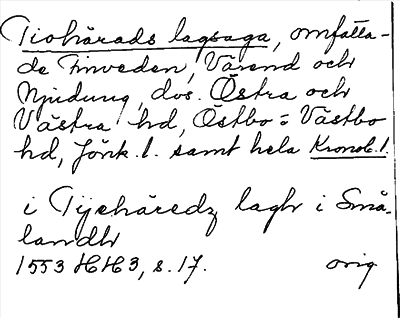 Tiohärads lagsaga, omfatta-
de Finveden, Värend och
Njudung, dvs. Östra och
Västra hd, Östbo = Västbo
hd, Jönk. l. samt hela Kronob. l.
i Tijehäredz laghr i Små-
landhr
1553 HH3, s. 17. orig